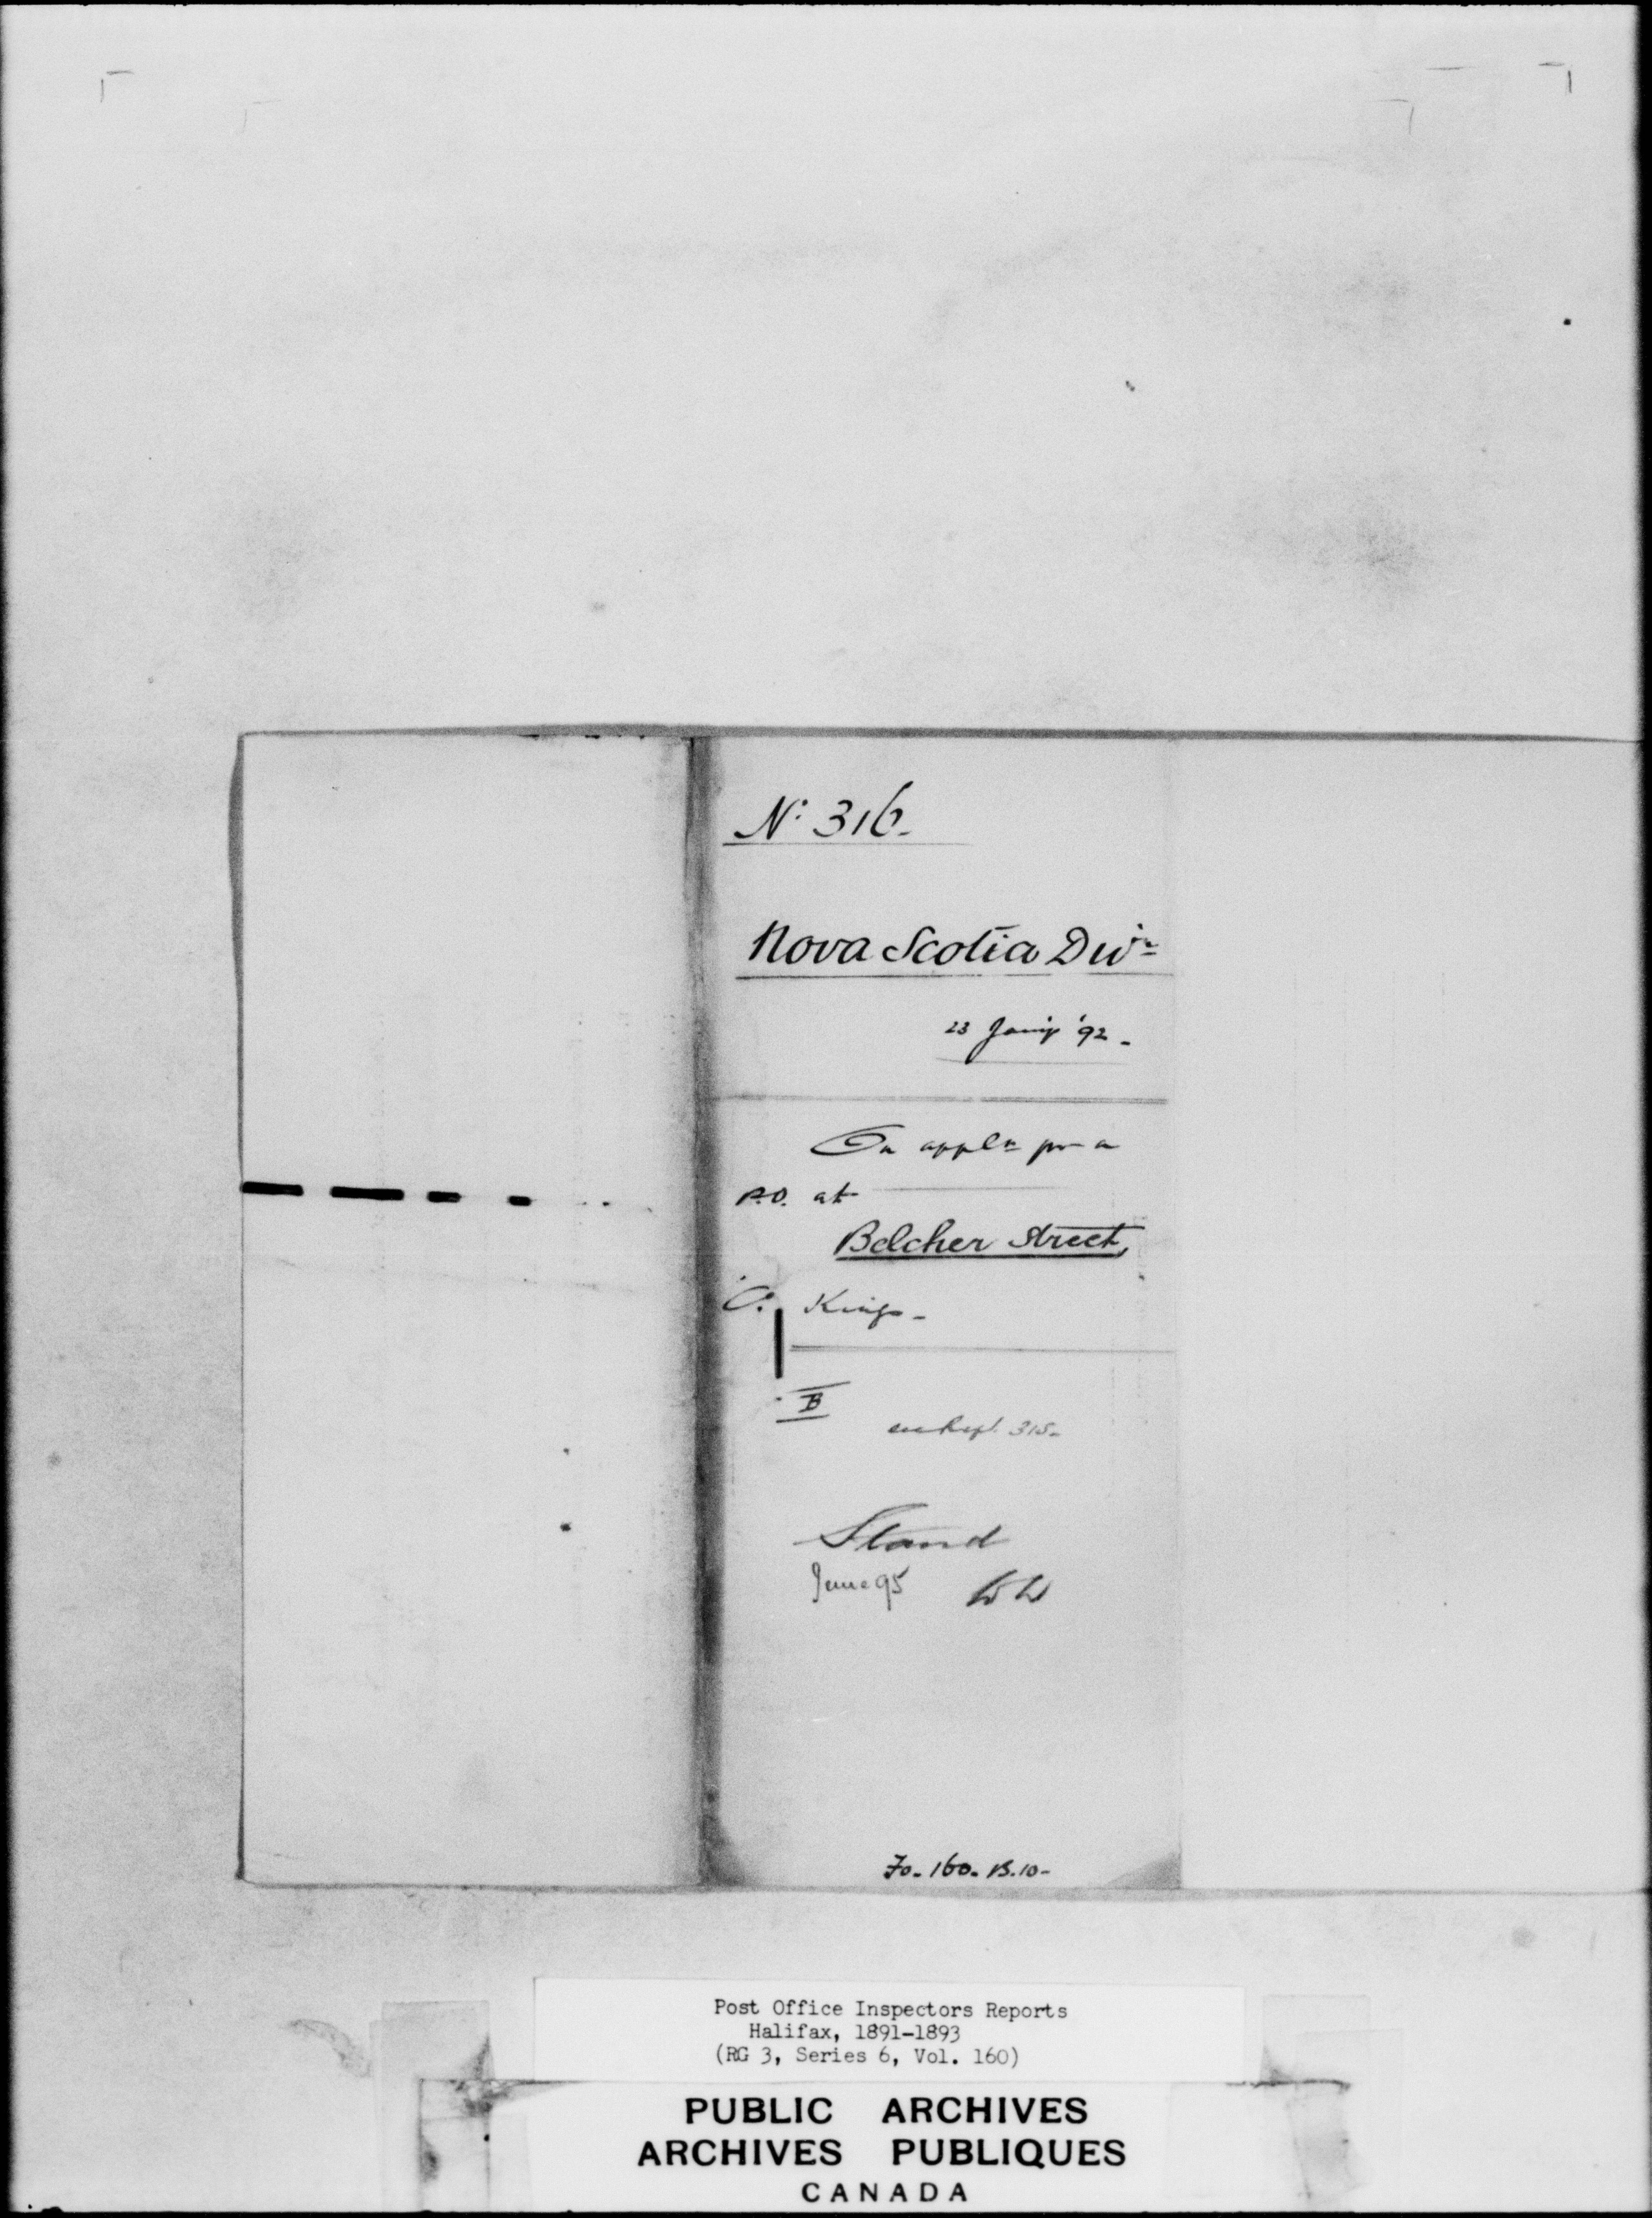 No. 316.
Nova Scotia Divn
23 Jany '92.
On appln for a
P.O. at
Belcher Street,
C. Kings.
B
see Rept. 315.
Stand
June 95 WW
Fo. 160. B. 10.
Post Office Inspectors Reports
Halifax, 1891-1893
(RG 3, Series 6, Vol. 160)
PUBLIC ARCHIVES
ARCHIVES PUBLIQUES
CANADA